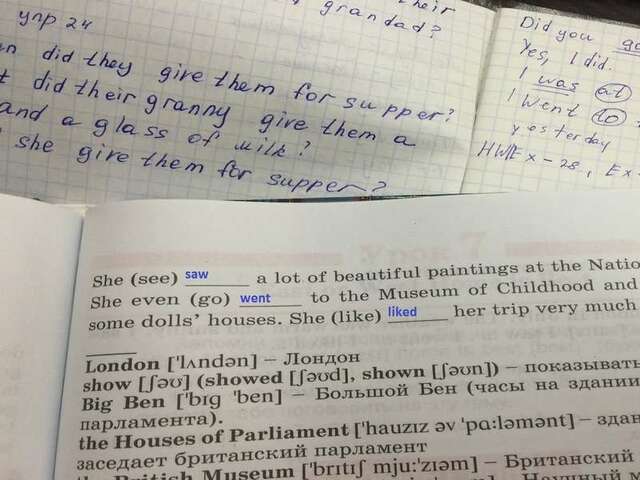 their
grandad?
упр 24
did they give them for supper?
did their granny give them a
and a glass of milk?
she give them for supper?
Did you
Yes, I did.
I was at
I went to
yesterday
HW Ex-28, Ex-
Урок 7
She (see) saw a lot of beautiful paintings at the Natio
She even (go) went to the Museum of Childhood and
some dolls' houses. She (like) liked her trip very much
London ['lʌndən] – Лондон
show [ʃəʊ] (showed [ʃəʊd], shown [ʃəʊn]) – показывать
Big Ben ['bɪg 'ben] – Большой Бен (часы на здании
парламента).
the Houses of Parliament ['hauzɪz əv 'pɑ:ləmənt] – здан
заседает британский парламент
British Museum ['brɪtɪʃ mju:'zɪəm] – Британский